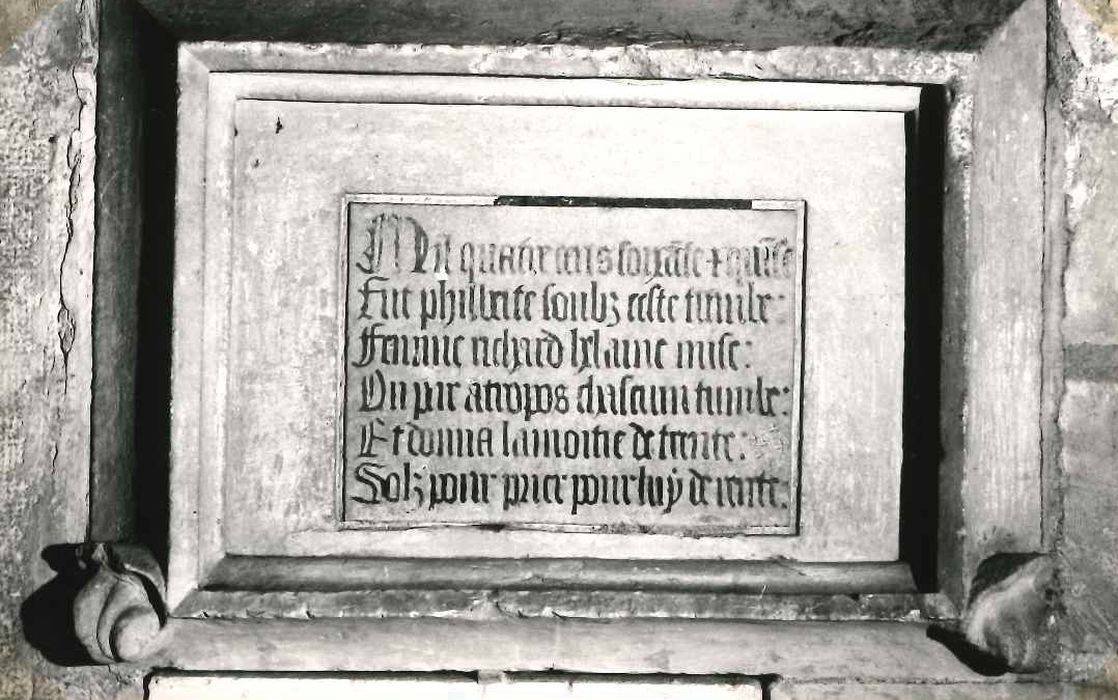 Mil quatre cens soixãte + quĩse
Fut philberte soubz ceste tumbe:
Femme richard helaine mise:
Ou par atropos chascun tumbe:
Et donna lamoitie de trente:
Solz pour prier pour luy de rente: